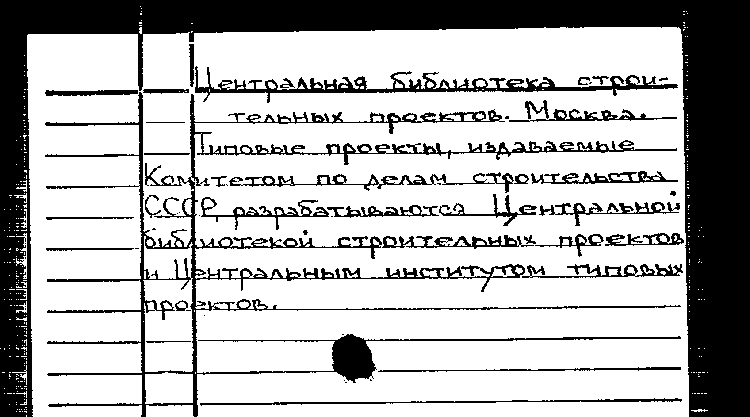 Центральная библиотека строи-
тельных проектов. Москва.
Типовые проекты, издаваемые
Комитетом по делам строительства
СССР, разрабатываются Центральной
библиотекой строительных проектов
и Центральным институтом типовых
проектов.